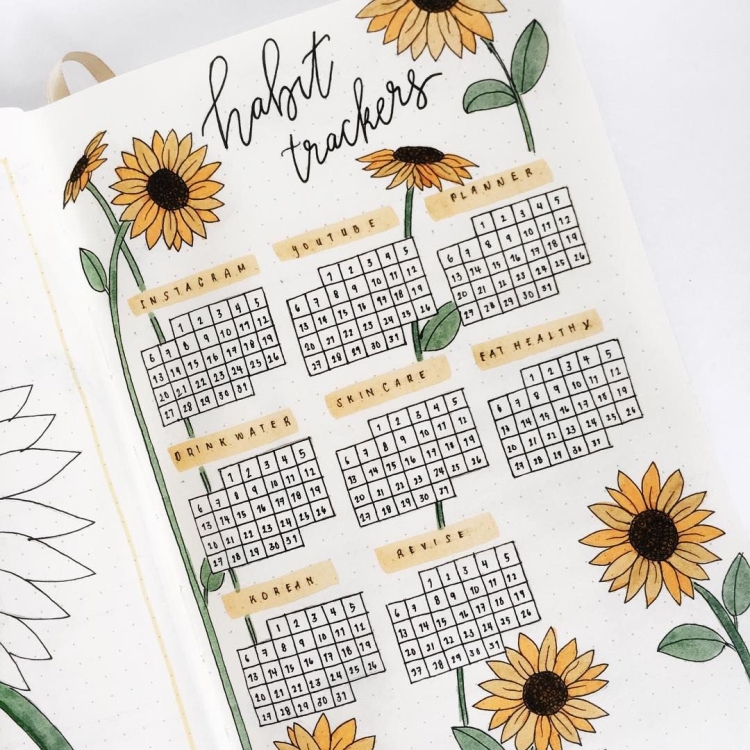 habit
trackers
INSTAGRAM
1 2 3 4 5
6 7 8 9 10 11 12
13 14 15 16 17 18 19
20 21 22 23 24 25 26
27 28 29 30 31
YOUTUBE
1 2 3 4 5
6 7 8 9 10 11 12
13 14 15 16 17 18 19
20 21 22 23 24 25 26
27 28 29 30 31
PLANNER
1 2 3 4 5
6 7 8 9 10 11 12
13 14 15 16 17 18 19
20 21 22 23 24 25 26
27 28 29 30 31
DRINK WATER
1 2 3 4 5
6 7 8 9 10 11 12
13 14 15 16 17 18 19
20 21 22 23 24 25 26
27 28 29 30 31
SKINCARE
1 2 3 4 5
6 7 8 9 10 11 12
13 14 15 16 17 18 19
20 21 22 23 24 25 26
27 28 29 30 31
EAT HEALTHY
1 2 3 4 5
6 7 8 9 10 11 12
13 14 15 16 17 18 19
20 21 22 23 24 25 26
27 28 29 30 31
KOREAN
1 2 3 4 5
6 7 8 9 10 11 12
13 14 15 16 17 18 19
20 21 22 23 24 25 26
27 28 29 30 31
REVISE
1 2 3 4 5
6 7 8 9 10 11 12
13 14 15 16 17 18 19
20 21 22 23 24 25 26
27 28 29 30 31